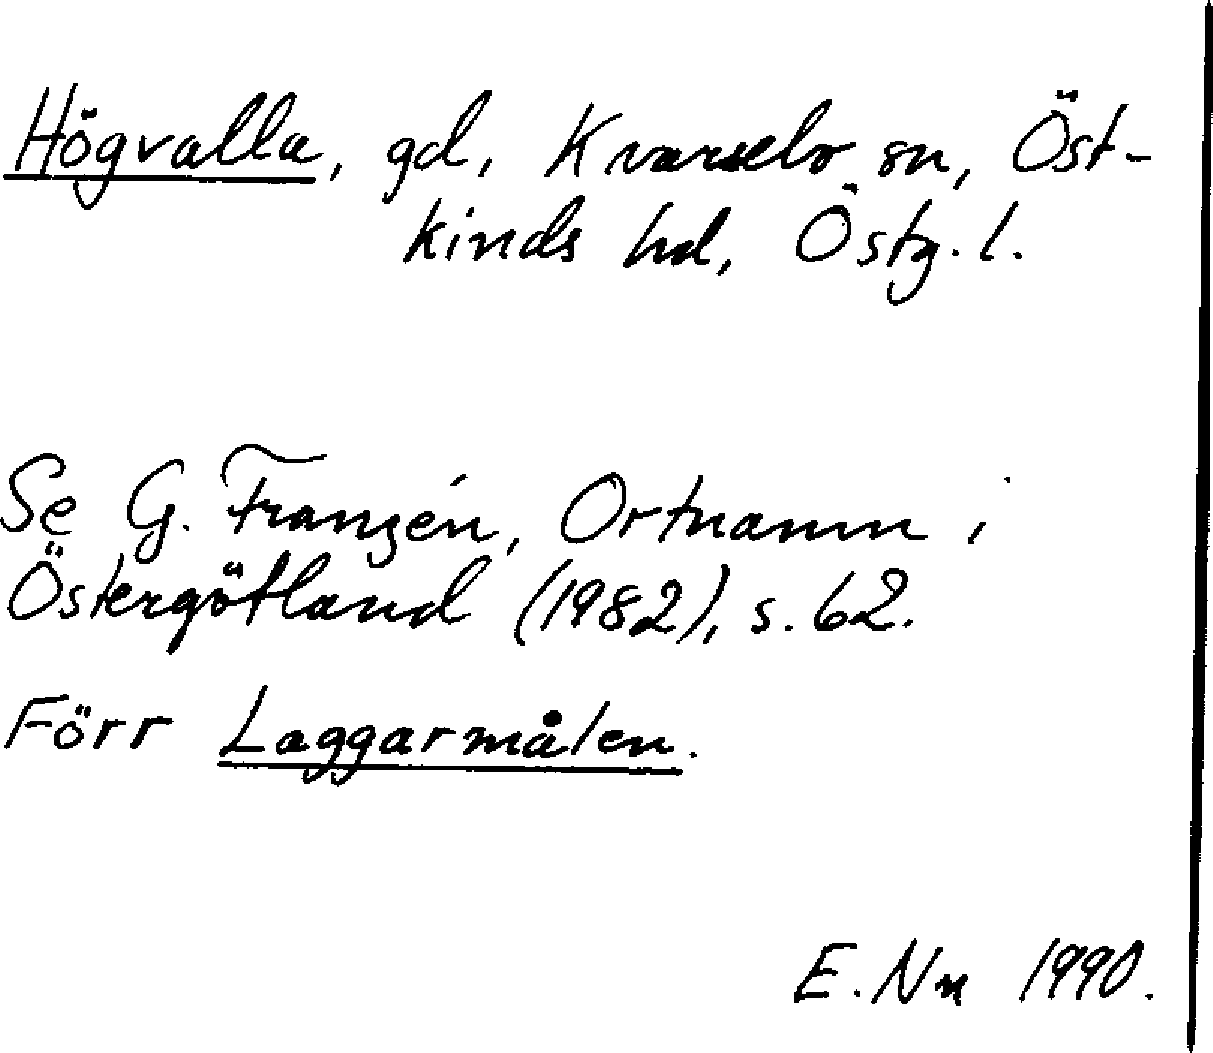 Högvalla, gd, Kvarsebo sn, Öst-
kinds hd, Östg. l.
Se G. Franzén, Ortnamn i
Östergötland (1982), s. 62.
Förr Laggarmålen.
E. Nn 1990.